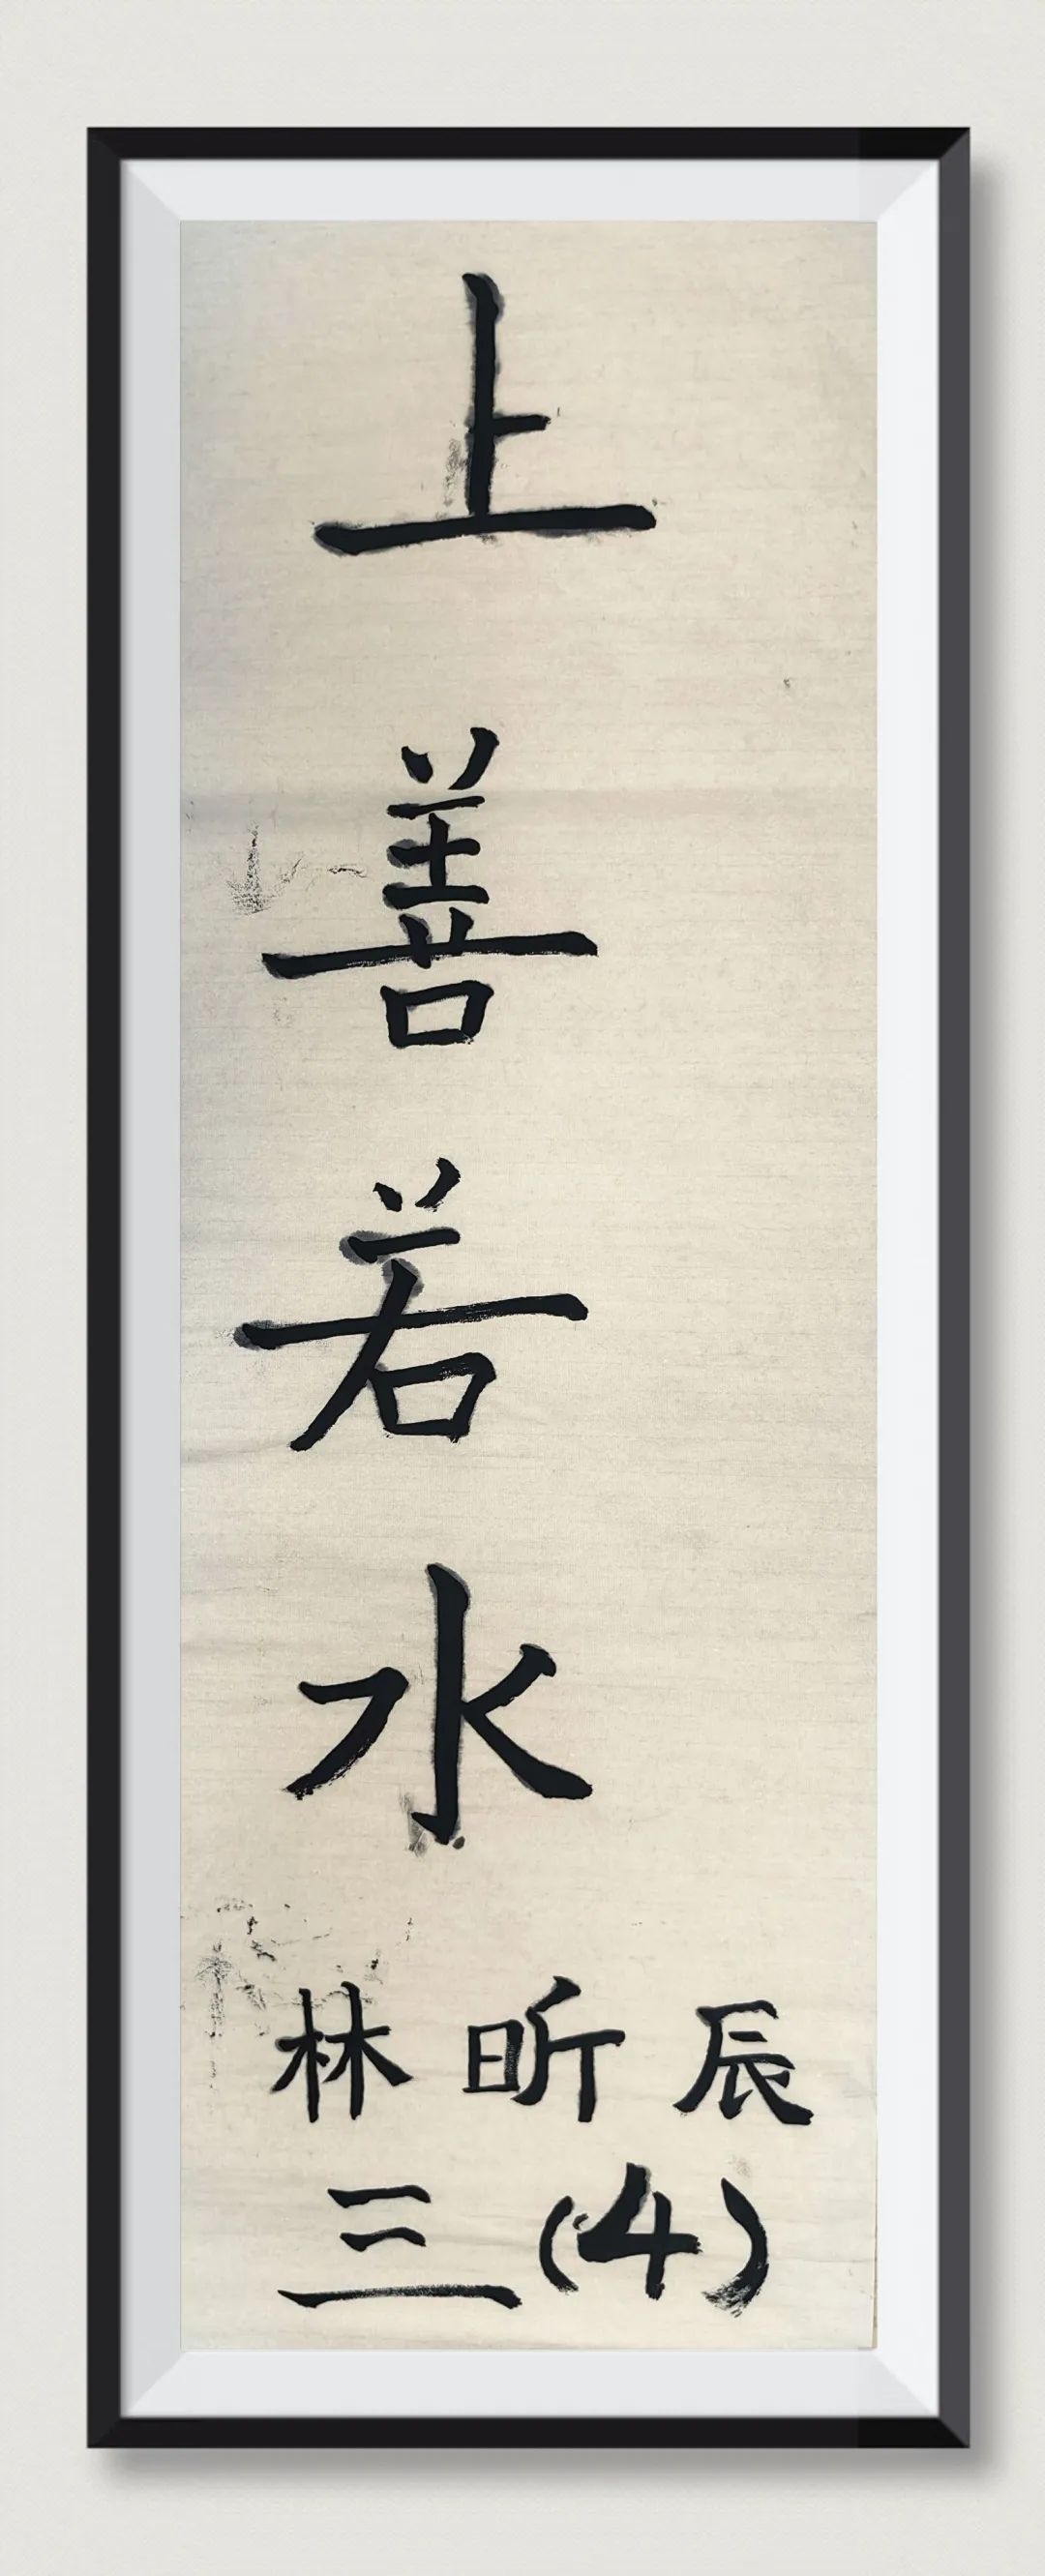 上善若水
林昕辰
三(4)